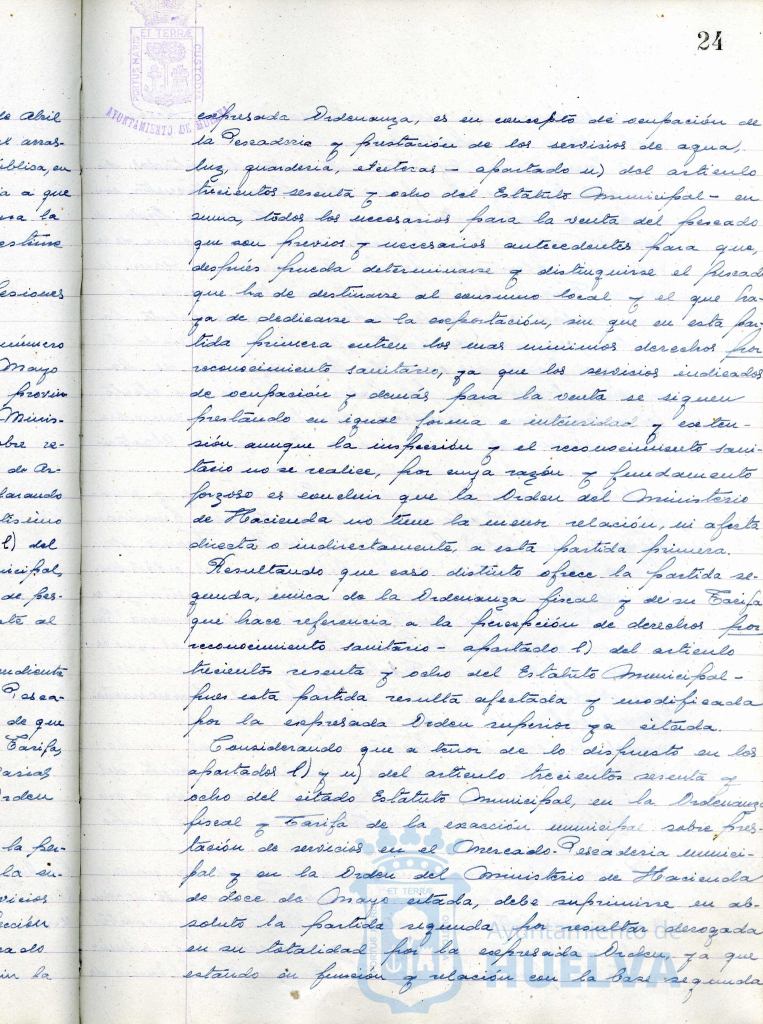 24
PORTUS MARIS
ET TERRÆ
CUSTODIA
AYUNTAMIENTO DE HUELVA
expresada Ordenanza, es en concepto de ocupación de
la Pescadería y prestación de los servicios de agua,
luz, guardería, etcétera - apartado u) del articulo
trecientos sesenta y ocho del Estatuto Municipal - en
suma, todos los necesarios para la venta del pescado
que son previos y necesarios antecedentes para que,
después pueda determinarse y distinguirse el pescado
que ha de destinarse al consumo local y el que ha-
ya de dedicarse a la exportación, sin que en esta par-
tida primera entren los mas minimos derechos por
reconocimiento sanitario, ya que los servicios indicados
de ocupación y demás para la venta se siguen
prestando en igual forma e intensidad y exten-
sión aunque la inspección y el reconocimiento sani-
tario no se realice, por cuya razón y fundamento
forzoso es concluir que la Orden del Ministerio
de Hacienda no tiene la menor relación, ni afecta
directa o indirectamente, a esta partida primera.
Resultando que caso distinto ofrece la partida se-
gunda, única de la Ordenanza fiscal y de su Tarifa
que hace referencia a la percepción de derechos por
reconocimiento sanitario - apartado l) del articulo
trecientos sesenta y ocho del Estatuto Municipal -
pues esta partida resulta afectada y modificada
por la expresada Orden superior ya citada.
Considerando que a tenor de lo dispuesto en los
apartados l) y u) del articulo trecientos sesenta y
ocho del citado Estatuto Municipal, en la Ordenanza
fiscal y Tarifa de la exacción municipal sobre pres-
tación de servicios en el Mercado-Pescaderia munici-
pal y en la Orden del Ministerio de Hacienda
de doce de Mayo citada, debe suprimirse en ab-
soluto la partida segunda por resultar derogada
en su totalidad por la expresada Orden, ya que
estando en función y relación con la base segunda
Ayuntamiento de
HUELVA
de Abril
arras-
ública, en
a que
la
estime
esiones
número
Mayo
provin
Minis-
obre re-
de Ar-
l) del
de pes-
al
Pesca-
de que
Tarifa,
Orden
la
vicios
la